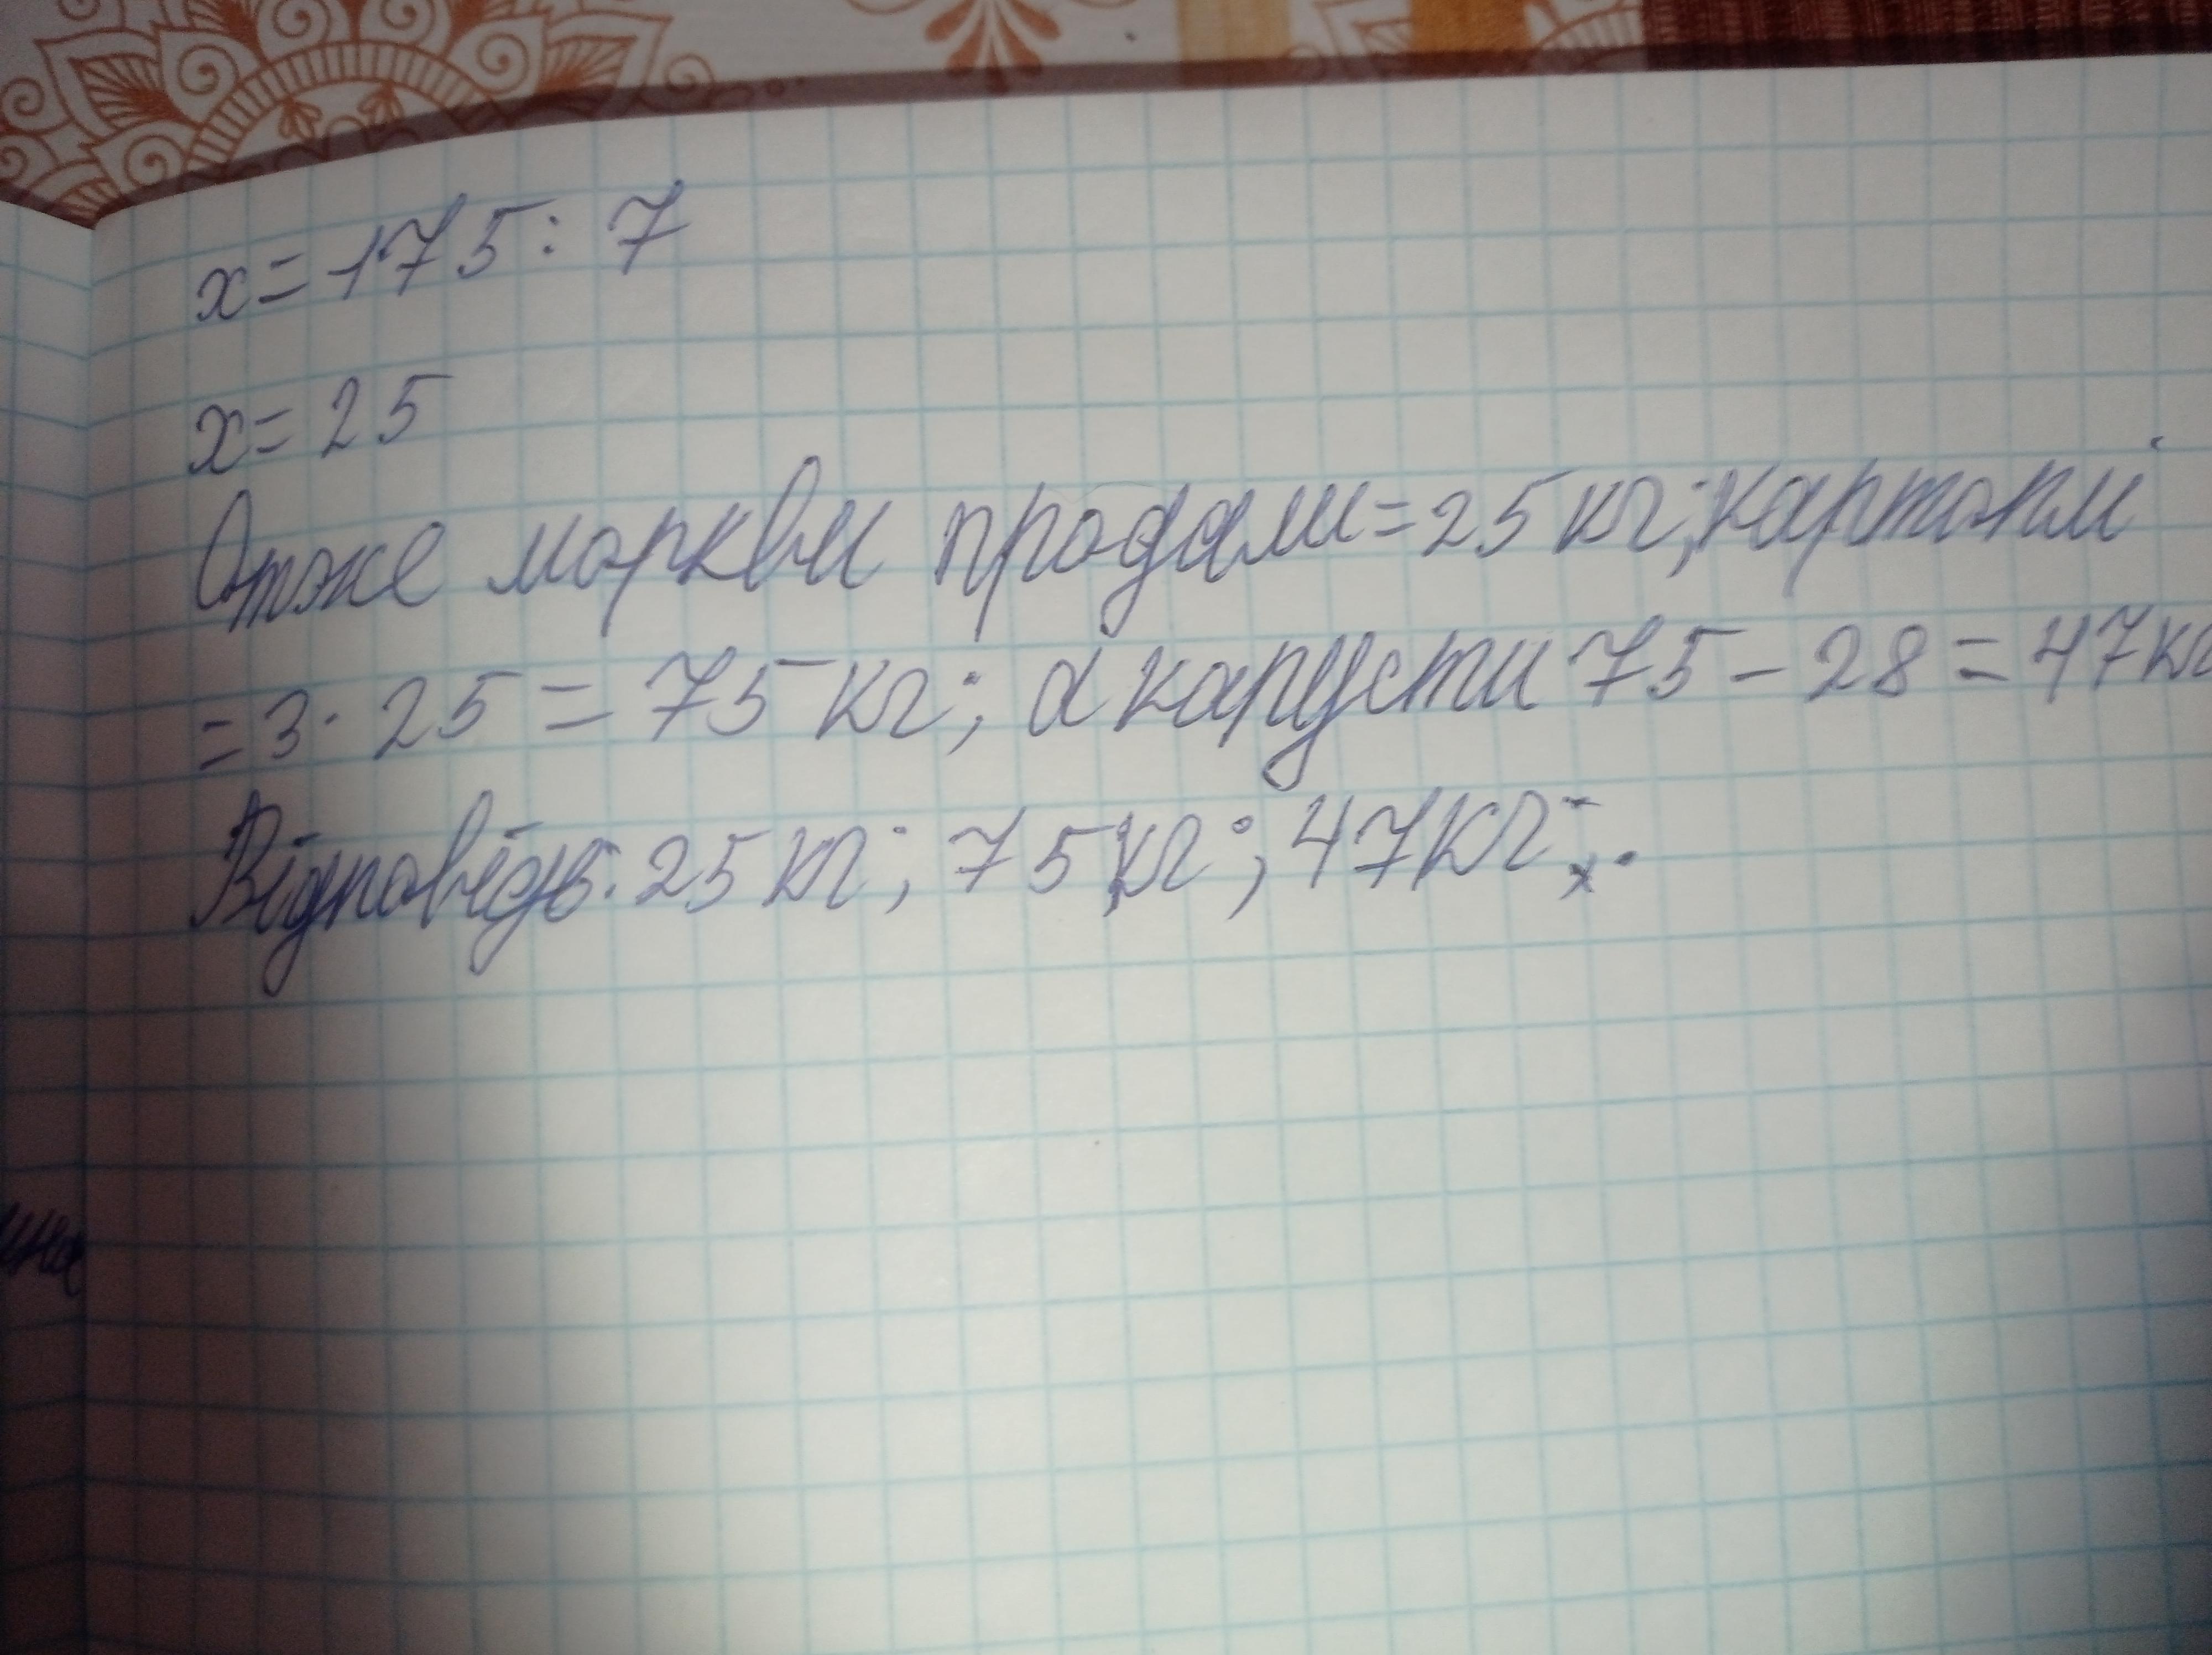 x=175:7
x=25
Отже моркви продали=25кг; картоплі
=3·25=75кг; а капусти 75-28=47кг
Відповідь: 25кг; 75кг; 47кг.